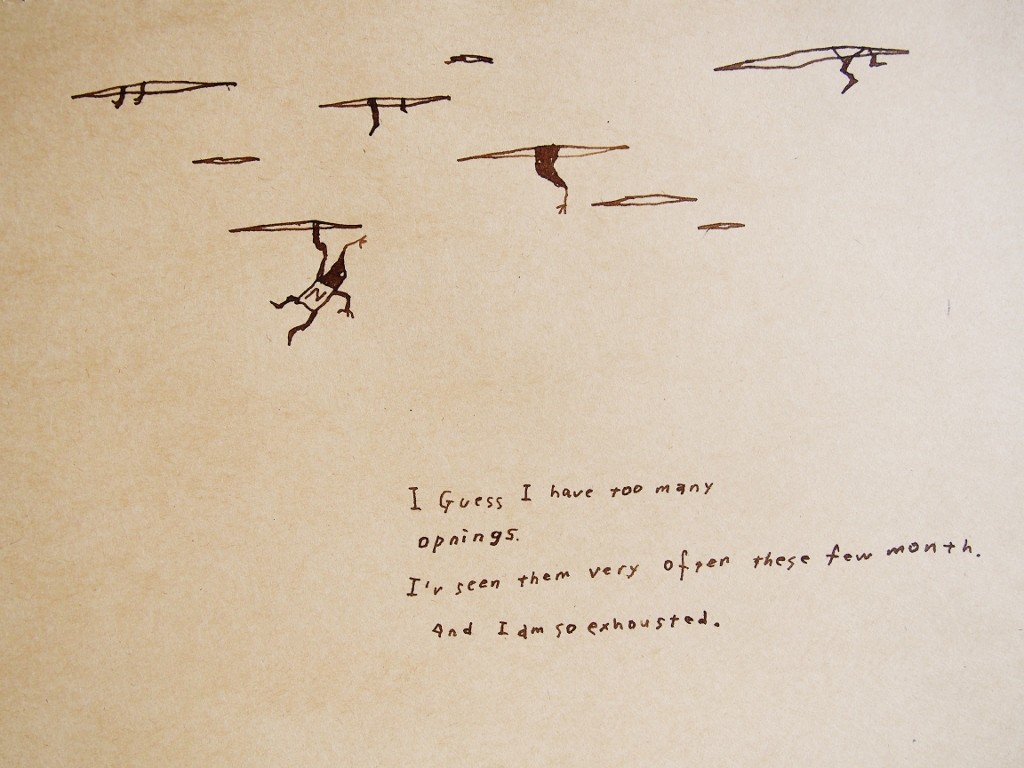 I Guess I have too many
opnings.
I'v seen them very often these few month.
And I am so exhousted.